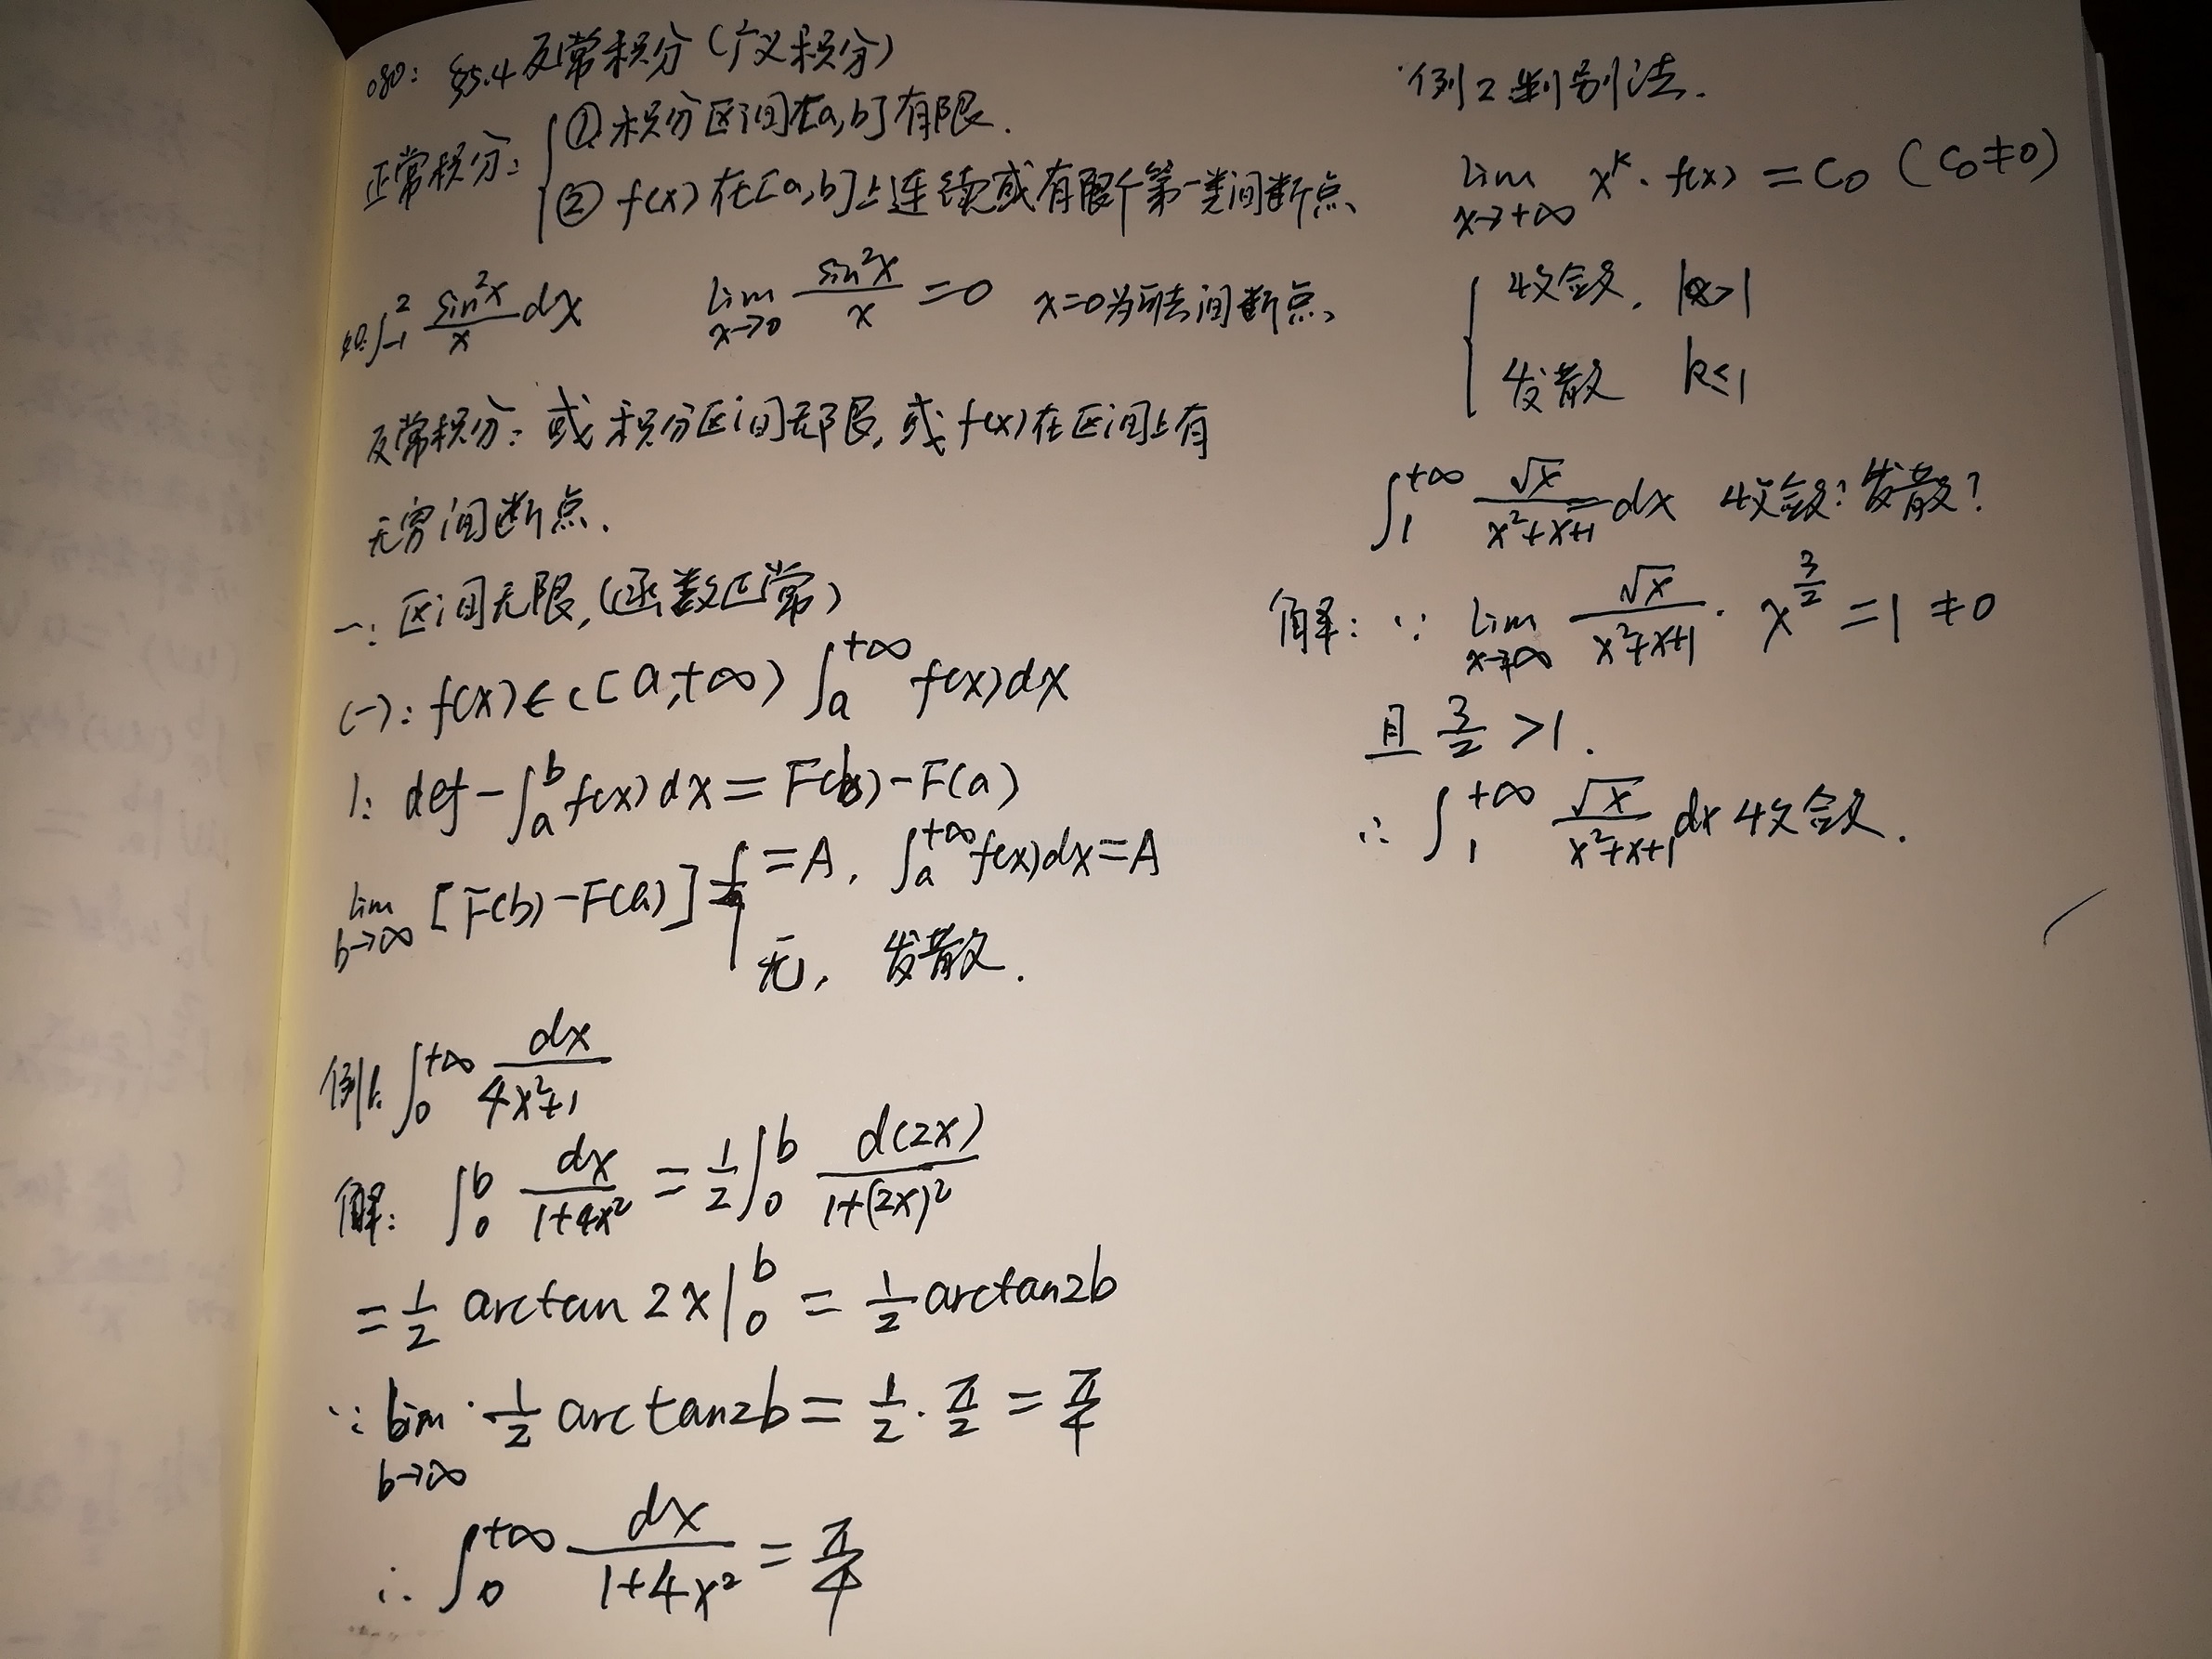 080: §5.4 反常积分(广义积分)
正常积分: { ① 积分区间[a,b]有限.
② f(x) 在[a,b]上连续或有限个第一类间断点、
如: ∫_{-1}^{2} \frac{sin²x}{x} dx   lim_{x→0} \frac{sin²x}{x} = 0   x=0为可去间断点、
反常积分: 或积分区间无限, 或 f(x) 在区间上有
无穷间断点.
一: 区间无限, (函数正常)
(一): f(x)∈C[a,+∞) ∫_{a}^{+∞} f(x)dx
1: def - ∫_{a}^{b} f(x)dx = F(b) - F(a)
lim_{b→∞} [F(b) - F(a)] { = A, ∫_{a}^{+∞} f(x)dx = A
无, 发散.
例1. ∫_{0}^{+∞} \frac{dx}{4x²+1}
解: ∫_{0}^{b} \frac{dx}{1+4x²} = \frac{1}{2} ∫_{0}^{b} \frac{d(2x)}{1+(2x)²}
= \frac{1}{2} arctan 2x |_{0}^{b} = \frac{1}{2} arctan2b
∵ lim_{b→∞} · \frac{1}{2} arctan2b = \frac{1}{2} · \frac{π}{2} = \frac{π}{4}
∴ ∫_{0}^{+∞} \frac{dx}{1+4x²} = \frac{π}{4}
例2 判别法.
lim_{x→+∞} x^k · f(x) = C₀ (C₀≠0)
{ 收敛, k>1
发散 k≤1
∫_{1}^{+∞} \frac{√x}{x²+x+1} dx 收敛? 发散?
解: ∵ lim_{x→+∞} \frac{√x}{x²+x+1} · x^{\frac{3}{2}} = 1 ≠ 0
且 \frac{3}{2} > 1.
∴ ∫_{1}^{+∞} \frac{√x}{x²+x+1} dx 收敛.